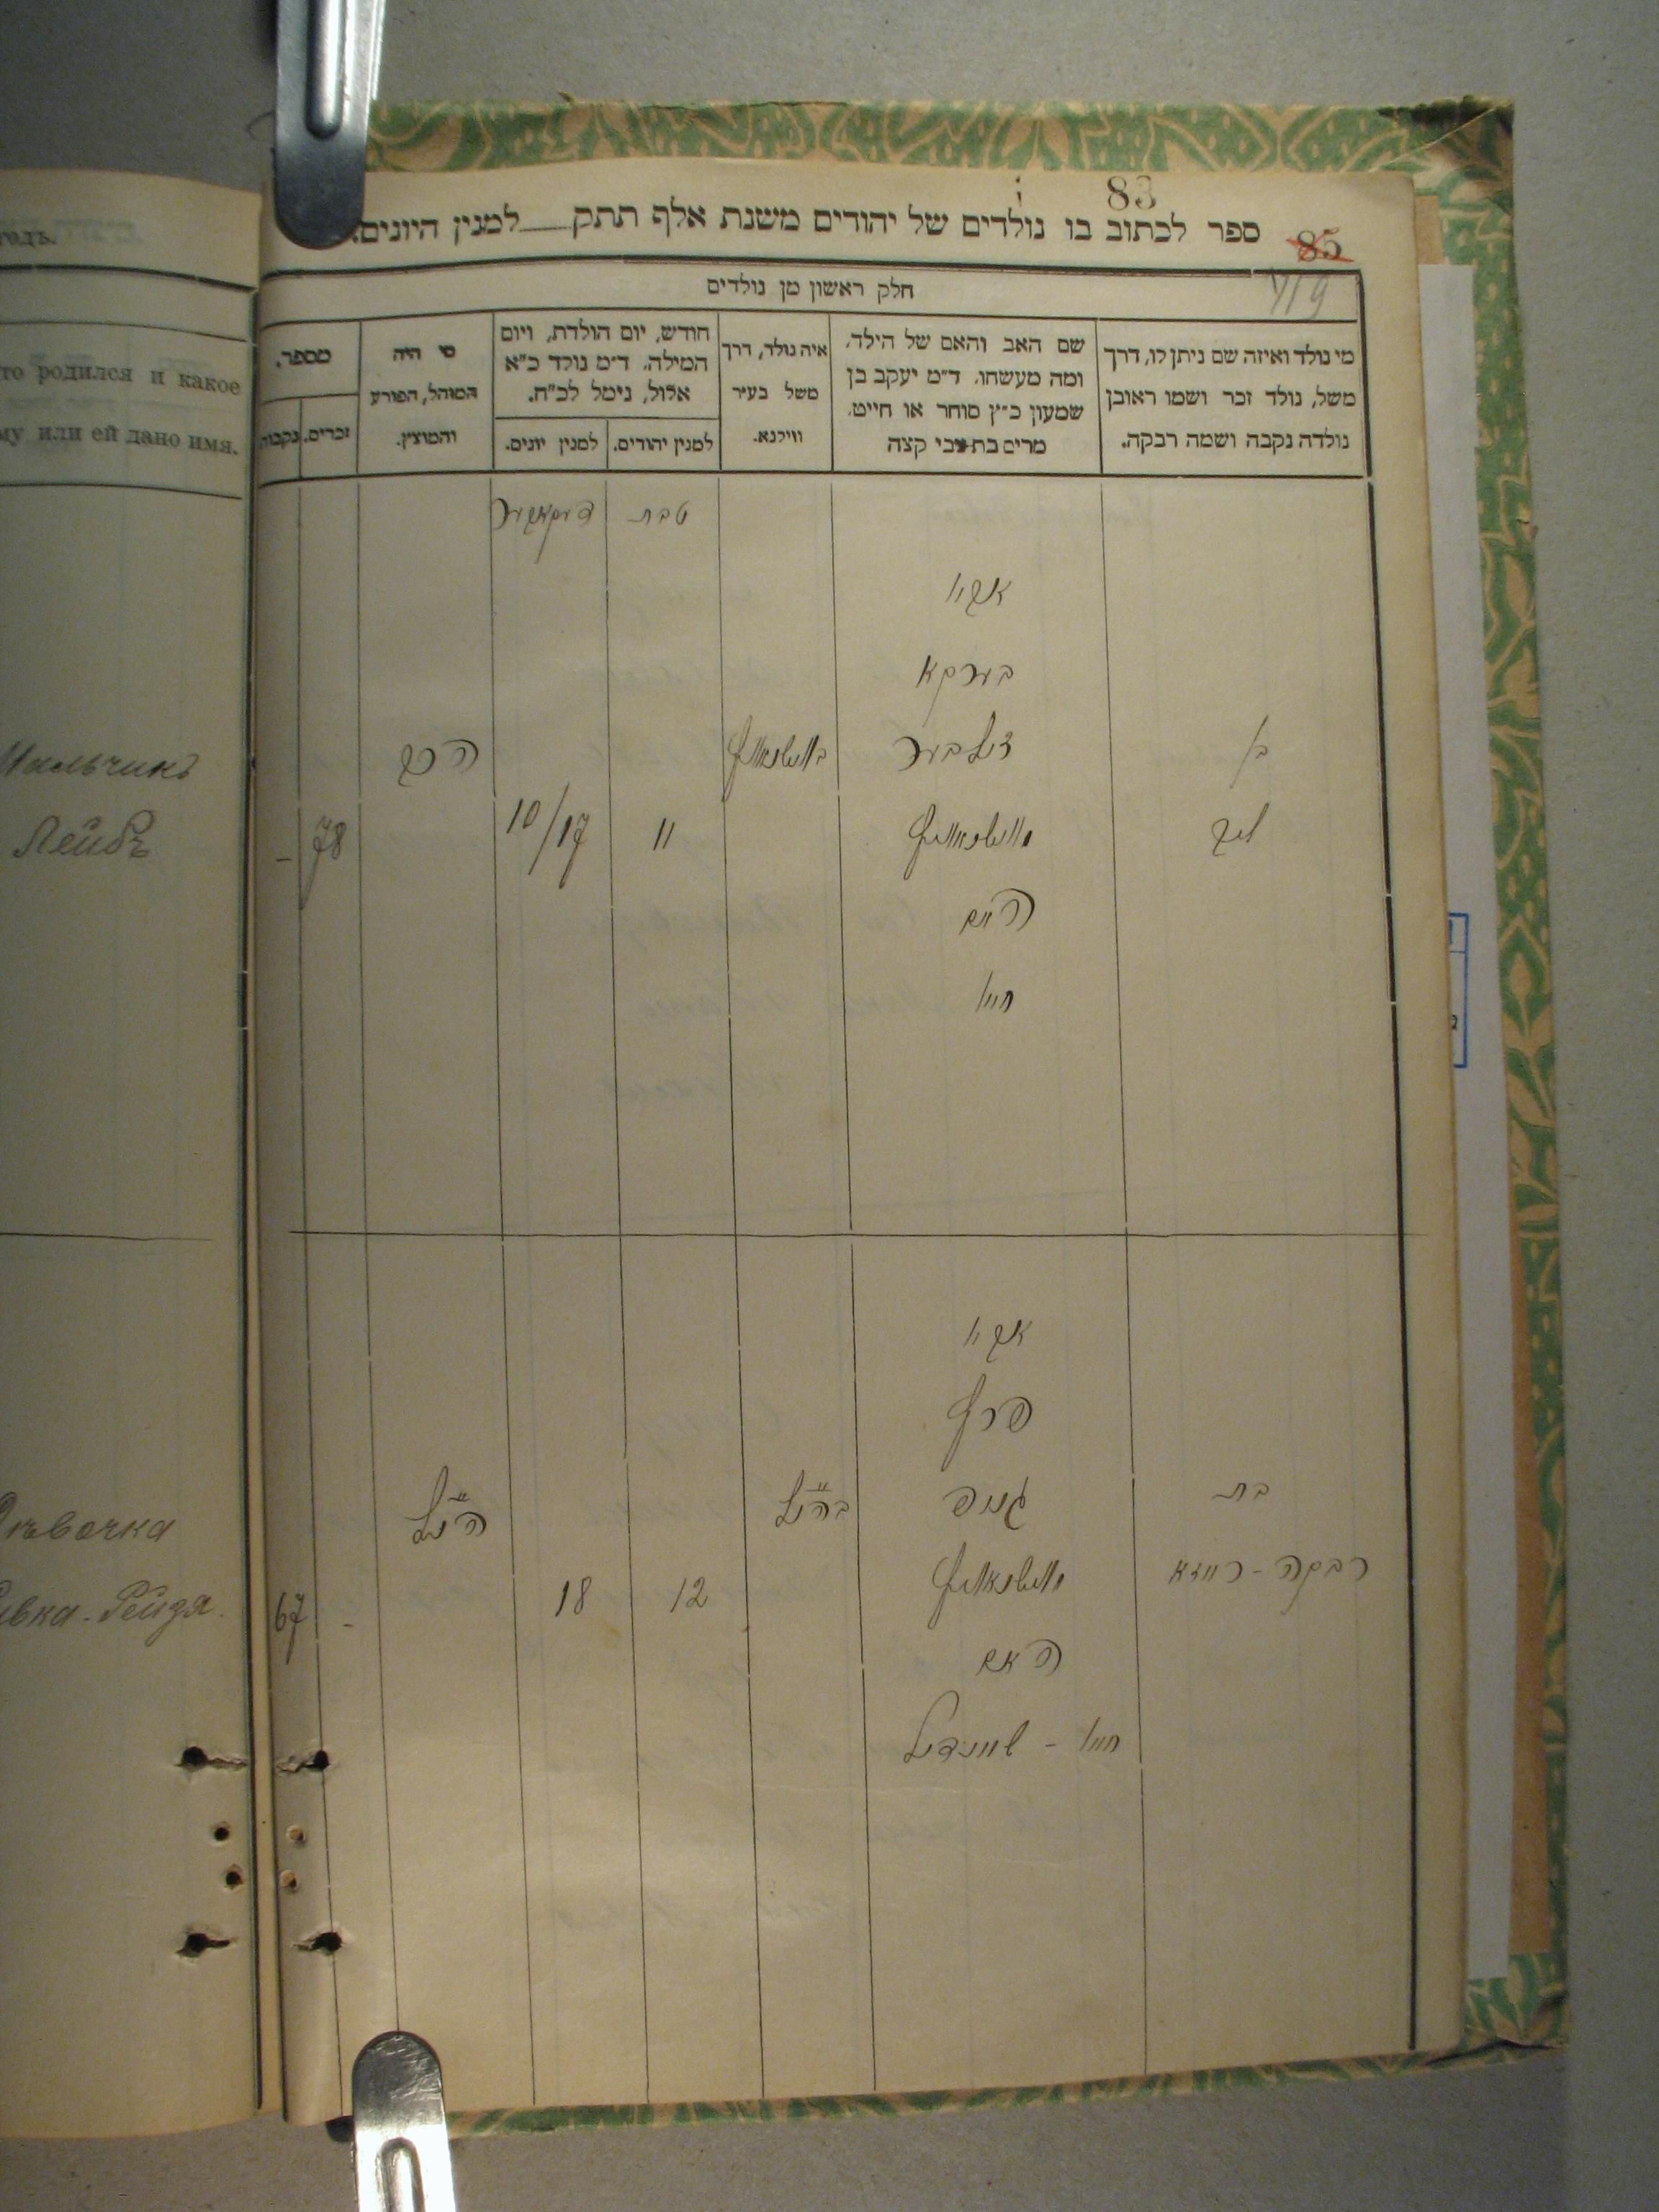 83
ספר לכתוב בו נולדים של יהודים משנת אלף תתק__ למנין היונים.
85
חלק ראשון מן נולדים
מי נולד ואיזה שם ניתן לו, דרך
משל, נולד זכר ושמו ראובן
נולדה נקבה ושמה רבקה.
שם האב והאם של הילד,
ומה מעשהו, ד״מ יעקב בן
שמעון כ״ץ סוחר או חייט,
מרים בת צבי קצה
איה נולד, דרך
משל בעיר
ווילנא.
חודש, יום הולדת, ויום
המילה, ד״מ נולד כ״א
אלול, נימל לכ״ח.
למנין יהודים.
למנין יונים.
מי היה
המוהל, הפורע
והמוצץ.
מספר,
זכרים.
נקבות
טבת
דעקאבער
אביו
בערקא
זילבער
בן
הרב
לייב
11
10/17
78
-
האם
חיה
אביו
בת
הנ״ל
בהנ״ל
רבקה - רייזא
12
18
-
67
האם
חיה - שיינדיל
годъ.
то родился и какое
му или ей дано имя.
Мальчикъ
Лейбъ
Дѣвочка
ивка-Рейзя.